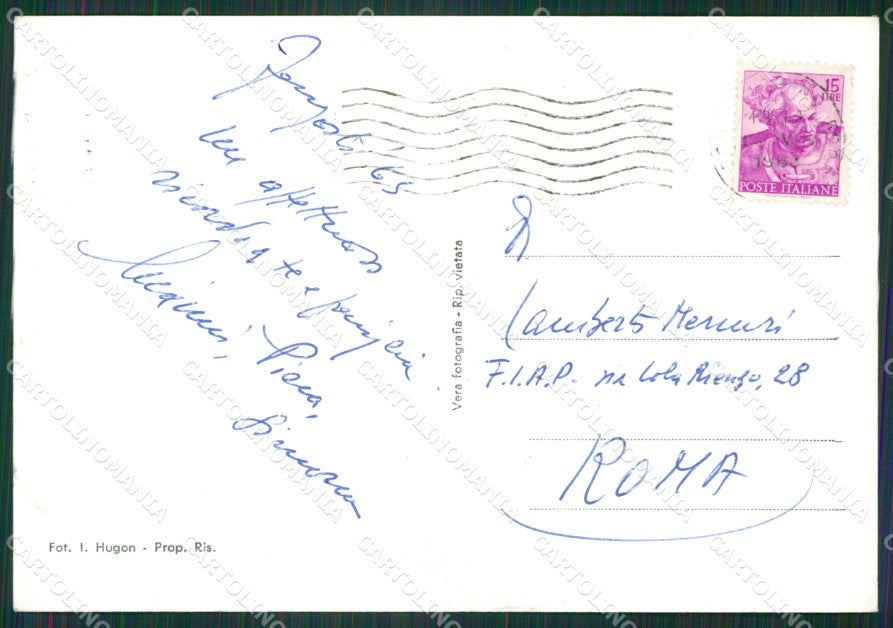 '63
un affettuoso
ricordo a te e famiglia
Piera,
Simona
15
LIRE
POSTE ITALIANE
Vera fotografia - Rip. vietata
A
Lamberto Mercuri
F.I.A.P. via Cola Rienzo, 28
ROMA
Fot. I. Hugon - Prop. Ris.
CARTOLINOMANIA